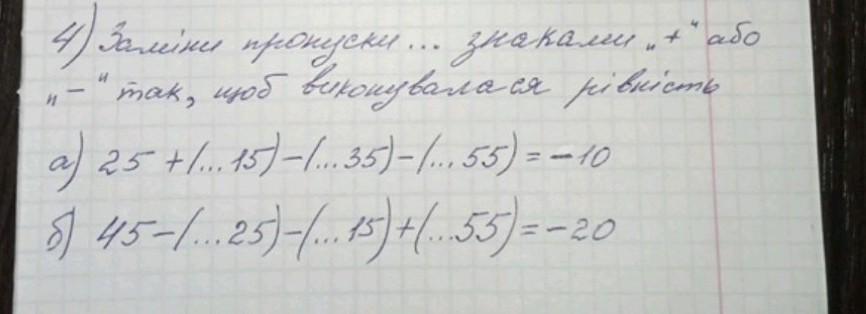 4) Заміни пропуски... знаками „+" або
„−" так, щоб виконувалася рівність
а) 25 + (... 15) − (... 35) − (... 55) = −10
б) 45 − (... 25) − (... 15) + (... 55) = −20